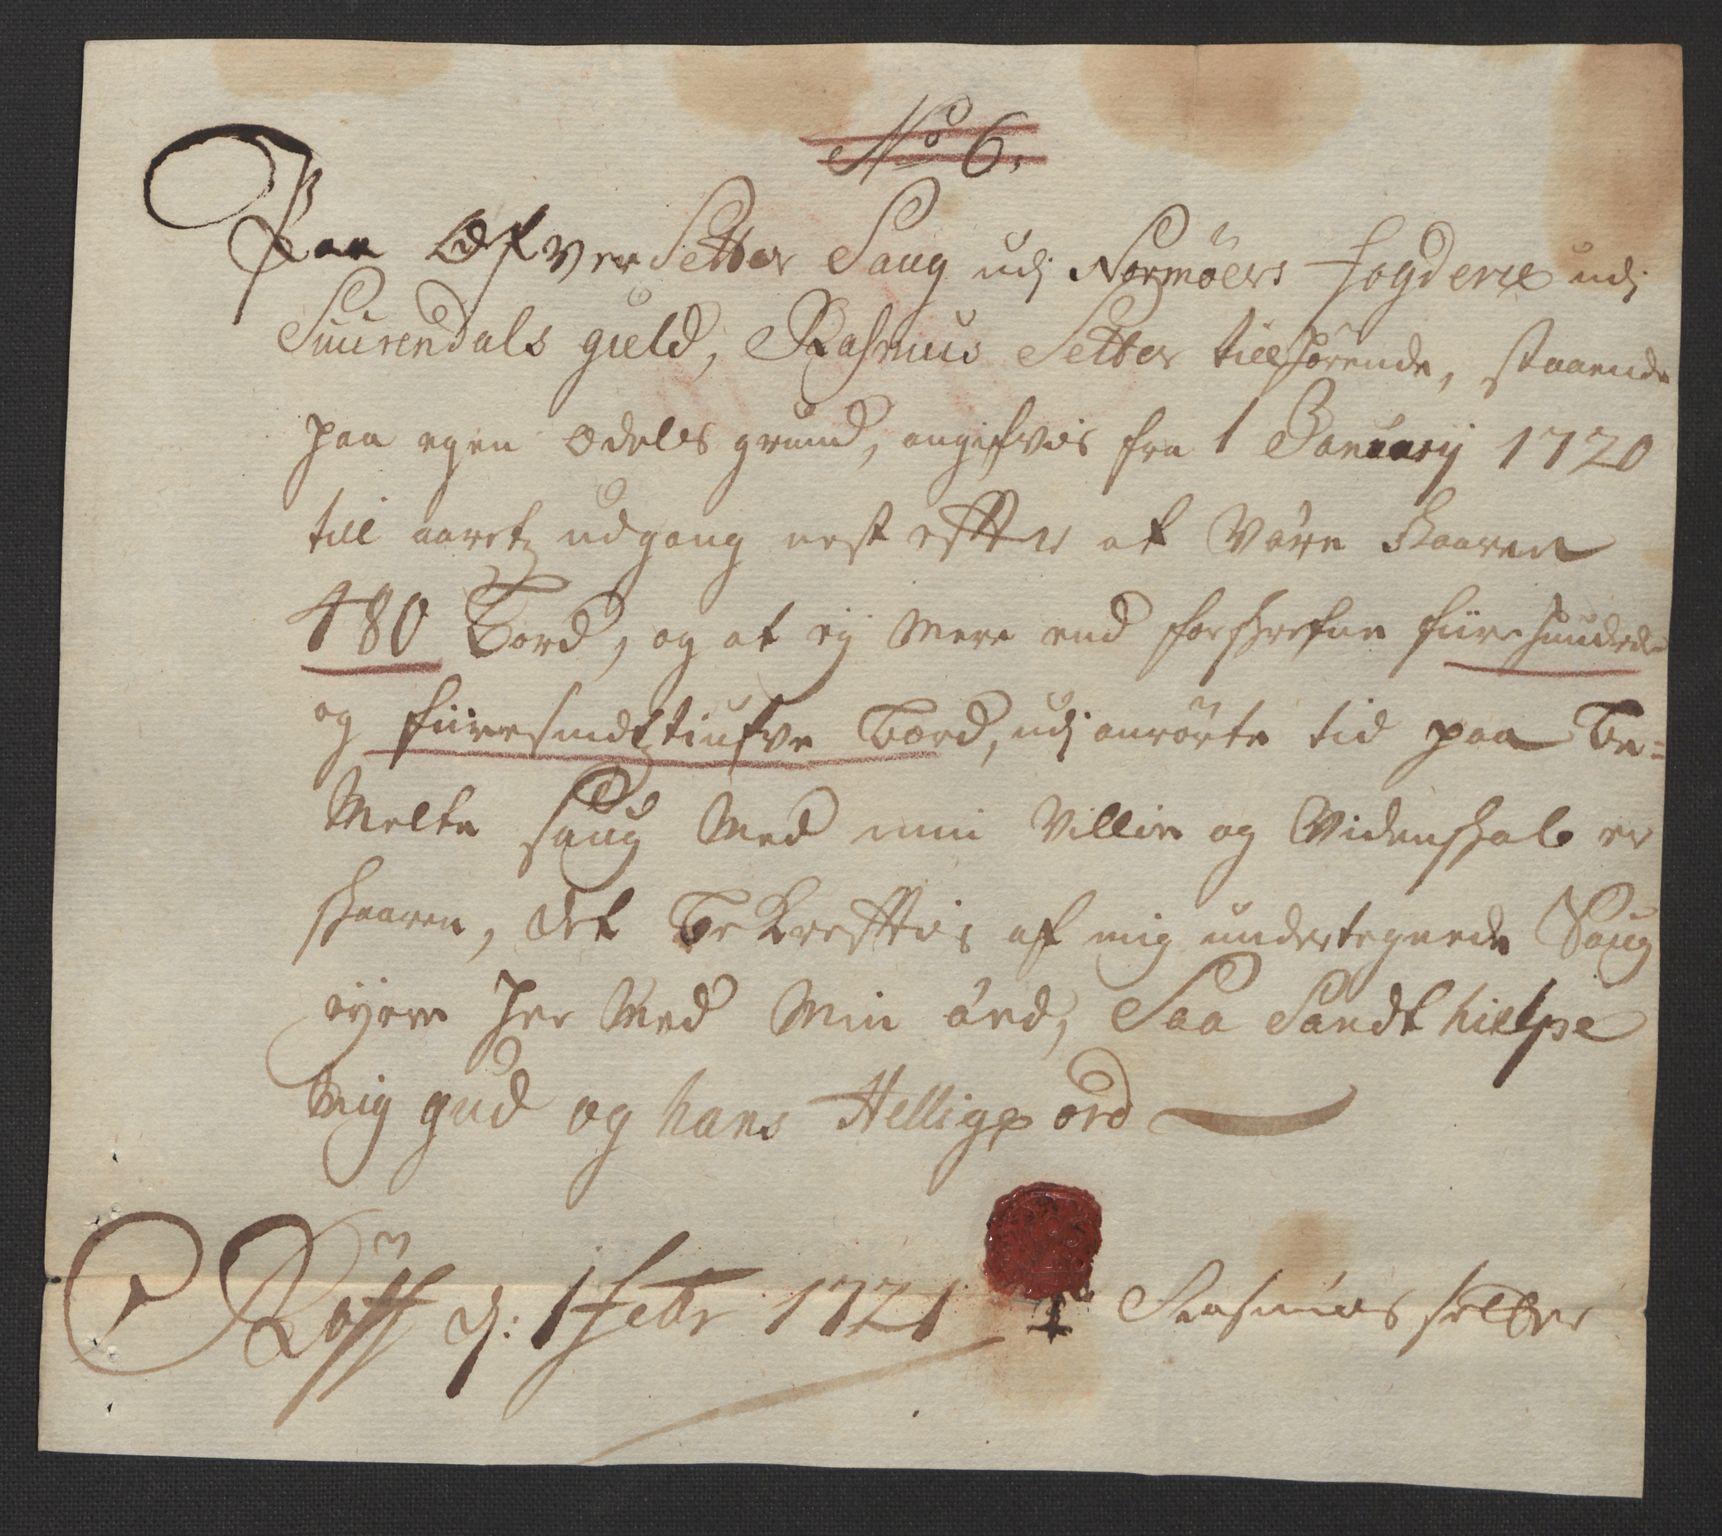 No 6.
Paa Øfver Setter Saug udj Normöers fogderie udj
Suurendals gield, Rasmus Setter tilhörende, staaende
paa egen odels grund, angifves fra 1 January 1720
till aaretz udgang nest effter at være skaaren
480 Bord, og at ej mere end forskrefne fiirehundrede
og fiiresindztiufve bord, udj anrörte tid paa be-
melte saug med min villie og Videnskab er
skaaren, det bekrefftes af mig undertegnede Saug
ejere her med min æed, Saa Sandt hielpe
mig gud og hans Hellige ord
Röff d: 1 Febr 1721 Rasmus setter